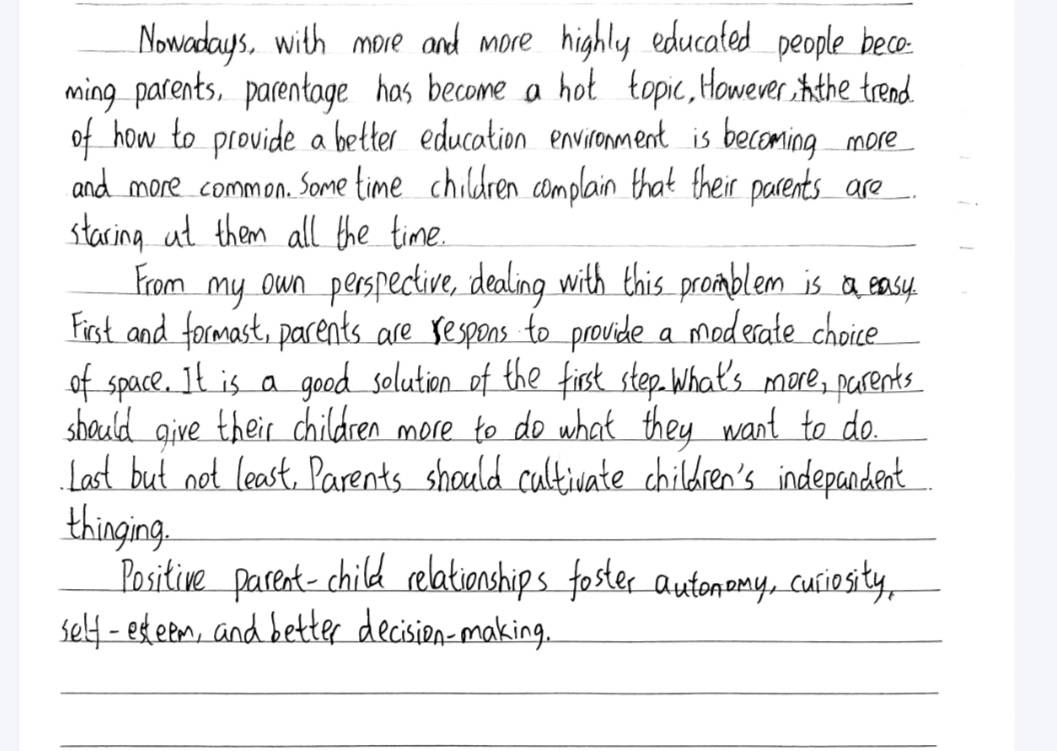 Nowadays, with more and more highly educated people beco-
ming parents, parentage has become a hot topic. However, the trend
of how to provide a better education environment is becoming more
and more common. Some time children complain that their parents are
staring at them all the time.
From my own perspective, dealing with this promblem is a easy.
First and formast, parents are respons to provide a moderate choice
of space. It is a good solution of the first step. What's more, parents
should give their children more to do what they want to do.
Last but not least, Parents should cultivate children's independent
thinging.
Positive parent-child relationships foster autonomy, curiosity,
self-esteem, and better decision-making.